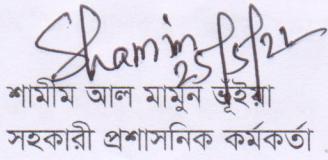 Shamim
25/5/22
শামীম আল মামুন ভূঁইয়া
সহকারী প্রশাসনিক কর্মকর্তা